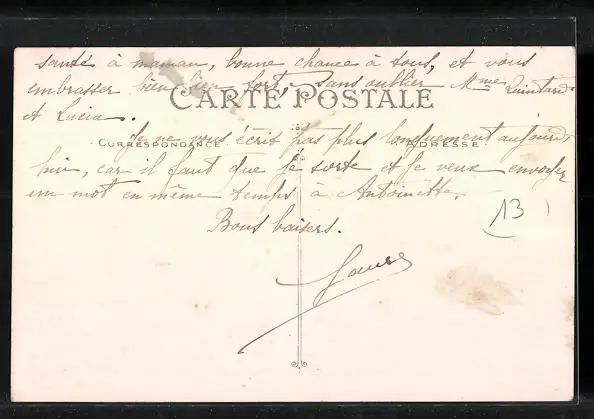 santé à maman, bonne chance à tous, et vous
embrasser bien bien fort, sans oublier Mme Quintard
et Lucia.
CARTE POSTALE
Je ne vous écrit pas plus longuement aujourd'
CORRESPONDANCE ADRESSE
hui, car il faut que je sorte et je veux envoyer
un mot en même temps à Antoinette.
Bons baisers.
13